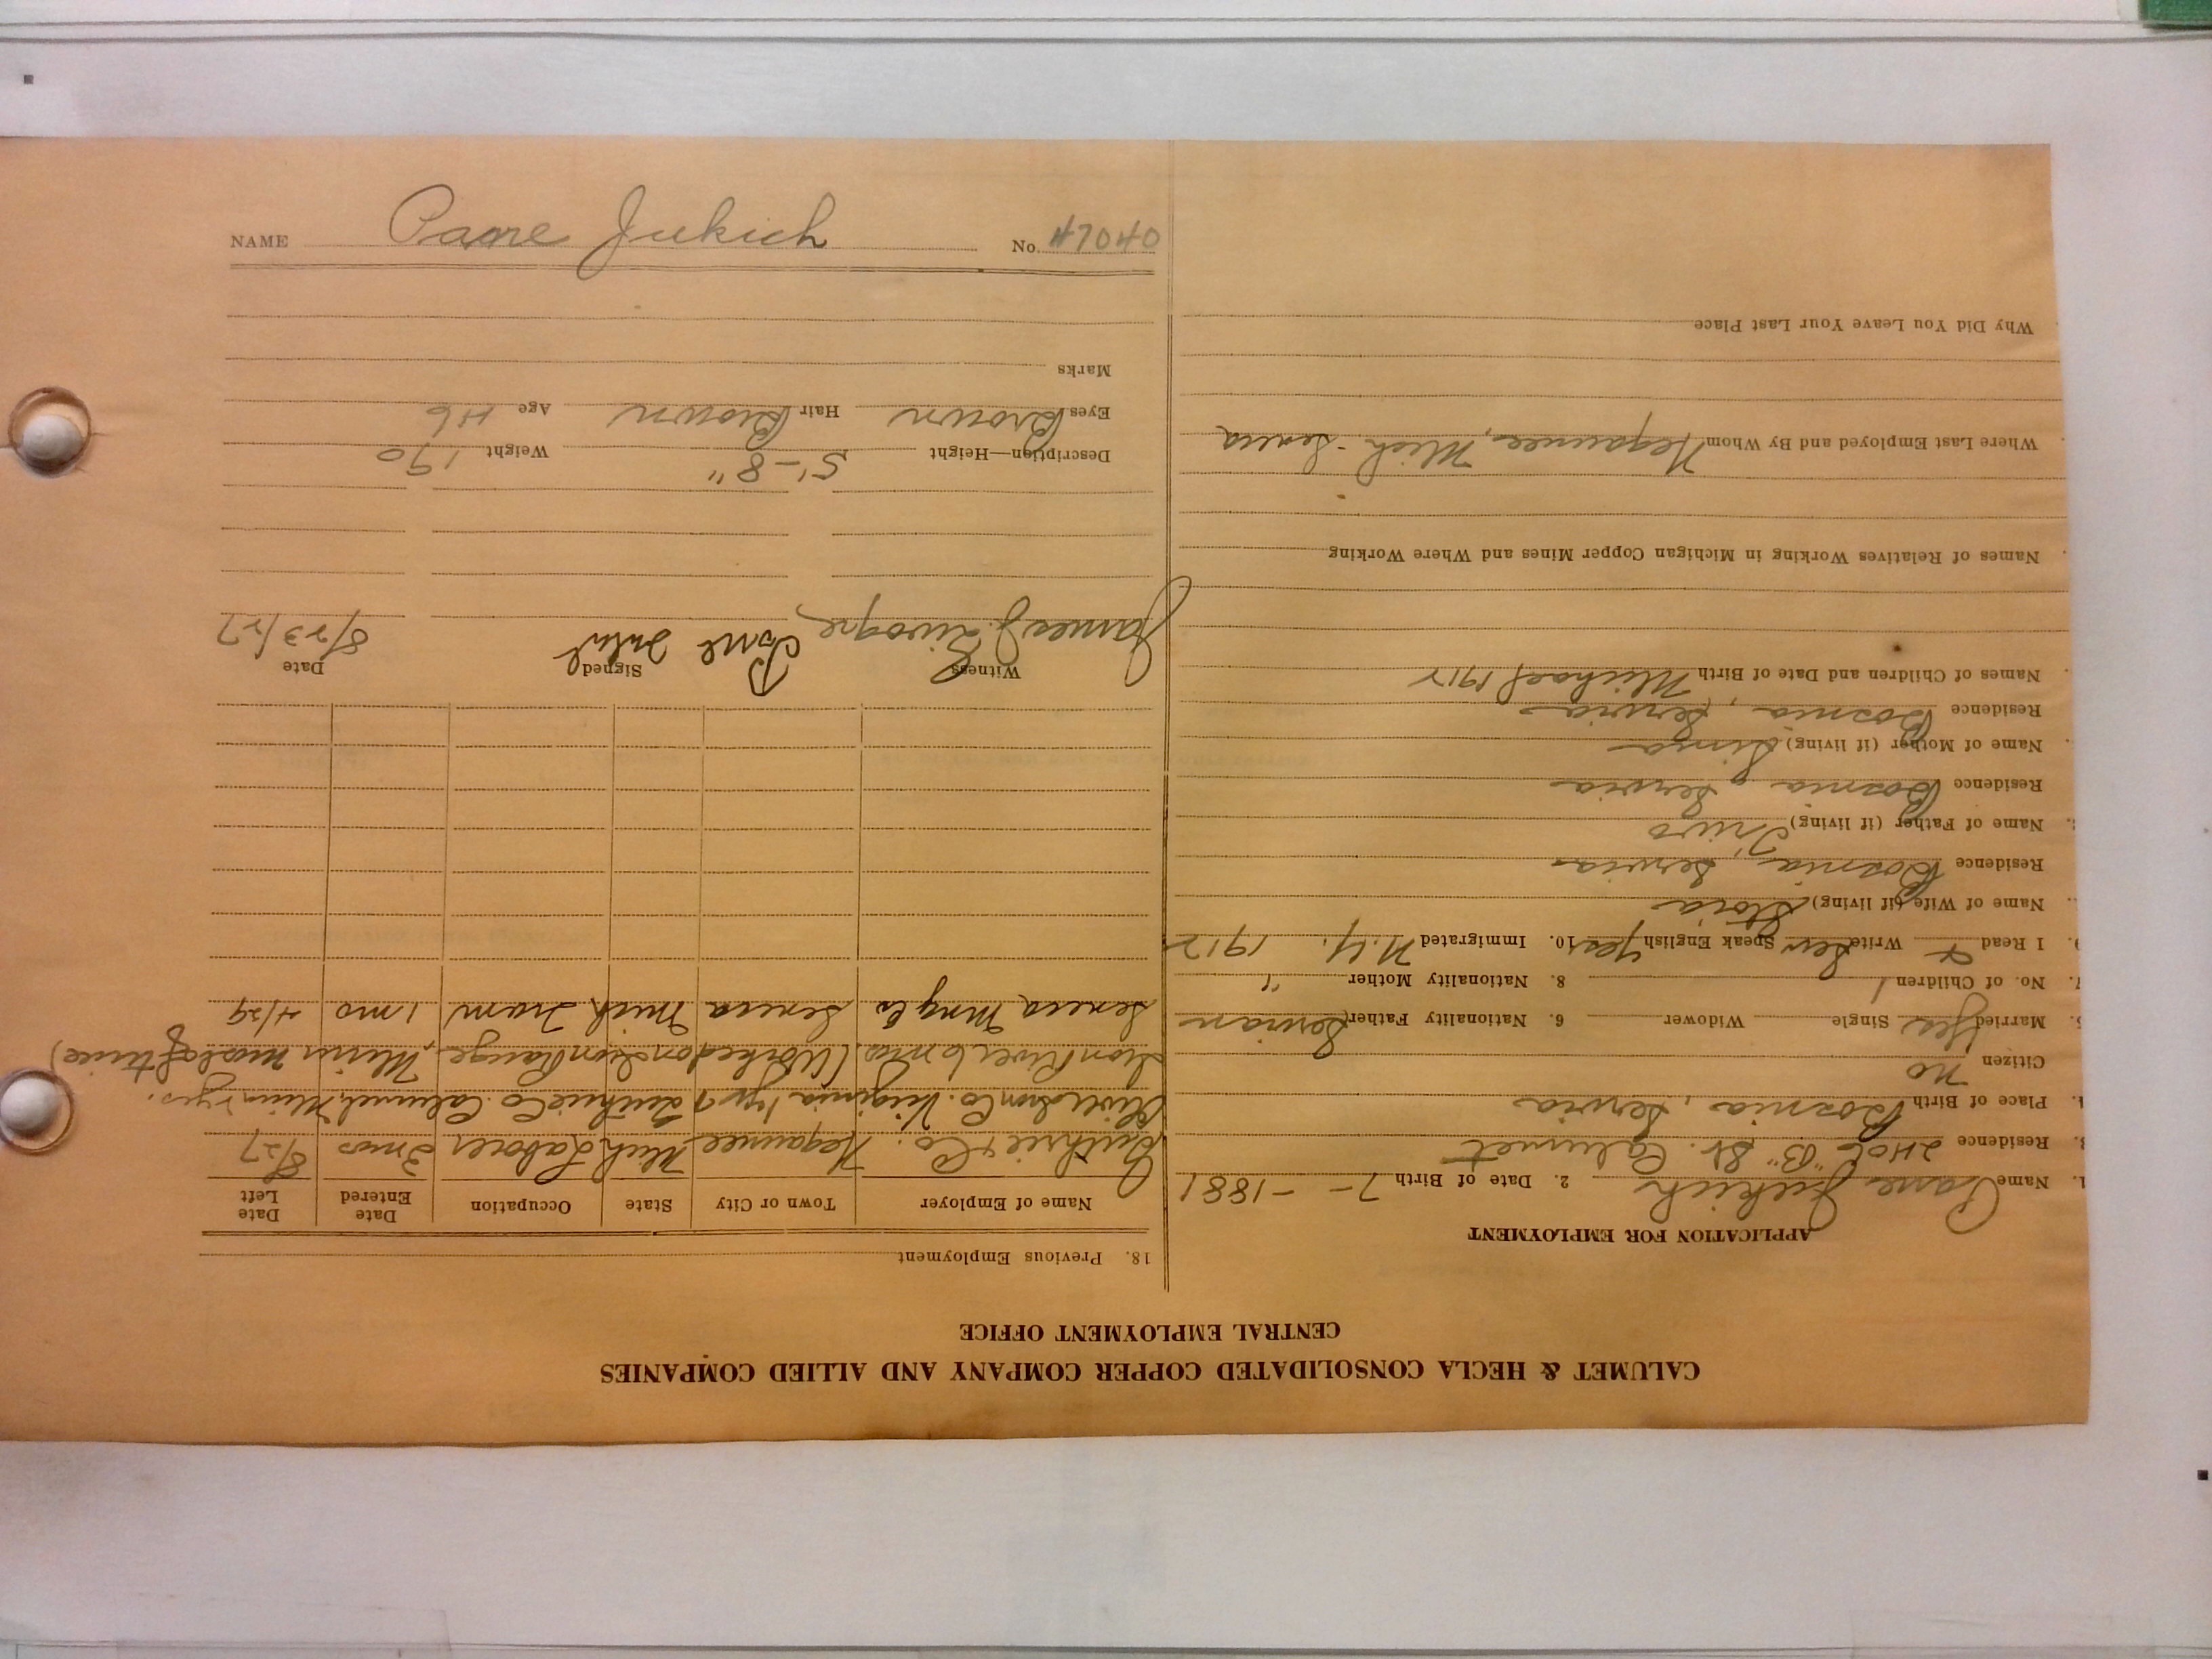 NAME Pane Jukich No. 47040
CALUMET & HECLA CONSOLIDATED COPPER COMPANY AND ALLIED COMPANIES
CENTRAL EMPLOYMENT OFFICE
APPLICATION FOR EMPLOYMENT
1. Name Pane Jukich 2. Date of Birth 7 - - 1881
3. Residence 2406 "B" St. Calumet
4. Place of Birth Bosnia, Servia
Citizen no
5. Married Yes Single Widower 6. Nationality Father Servian
7. No. of Children 1 8. Nationality Mother "
9. I Read + Write Serv Speak English yes 10. Immigrated N.Y. 1912
Name of Wife (if living) Stoia
Residence Bosnia, Servia
Name of Father (if living) Trivo
Residence Bosnia, Servia
Name of Mother (if living) Simja
Residence Bosnia, Servia
Names of Children and Date of Birth Michael 1912
Names of Relatives Working in Michigan Copper Mines and Where Working
Where Last Employed and By Whom Negaunee, Mich - Seneca
Why Did You Leave Your Last Place
18. Previous Employment
Name of Employer Town or City State Occupation Date Entered Date Left
Guthrie & Co. Negaunee Mich Laborer 3 mos 8/27
Iron Co. Virginia 1 yr Guthrie Co. Calumet, Minn yrs.
Iron River 6 mos. (Worked on Iron Range, Minn most of time)
Seneca Mng Co Seneca Mich Tram 1 mo 4/29
Witness Signed Date
James J. Pane 8/23/27
Description—Height 5'-8" Weight 190
Eyes Brown Hair Brown Age 46
Marks